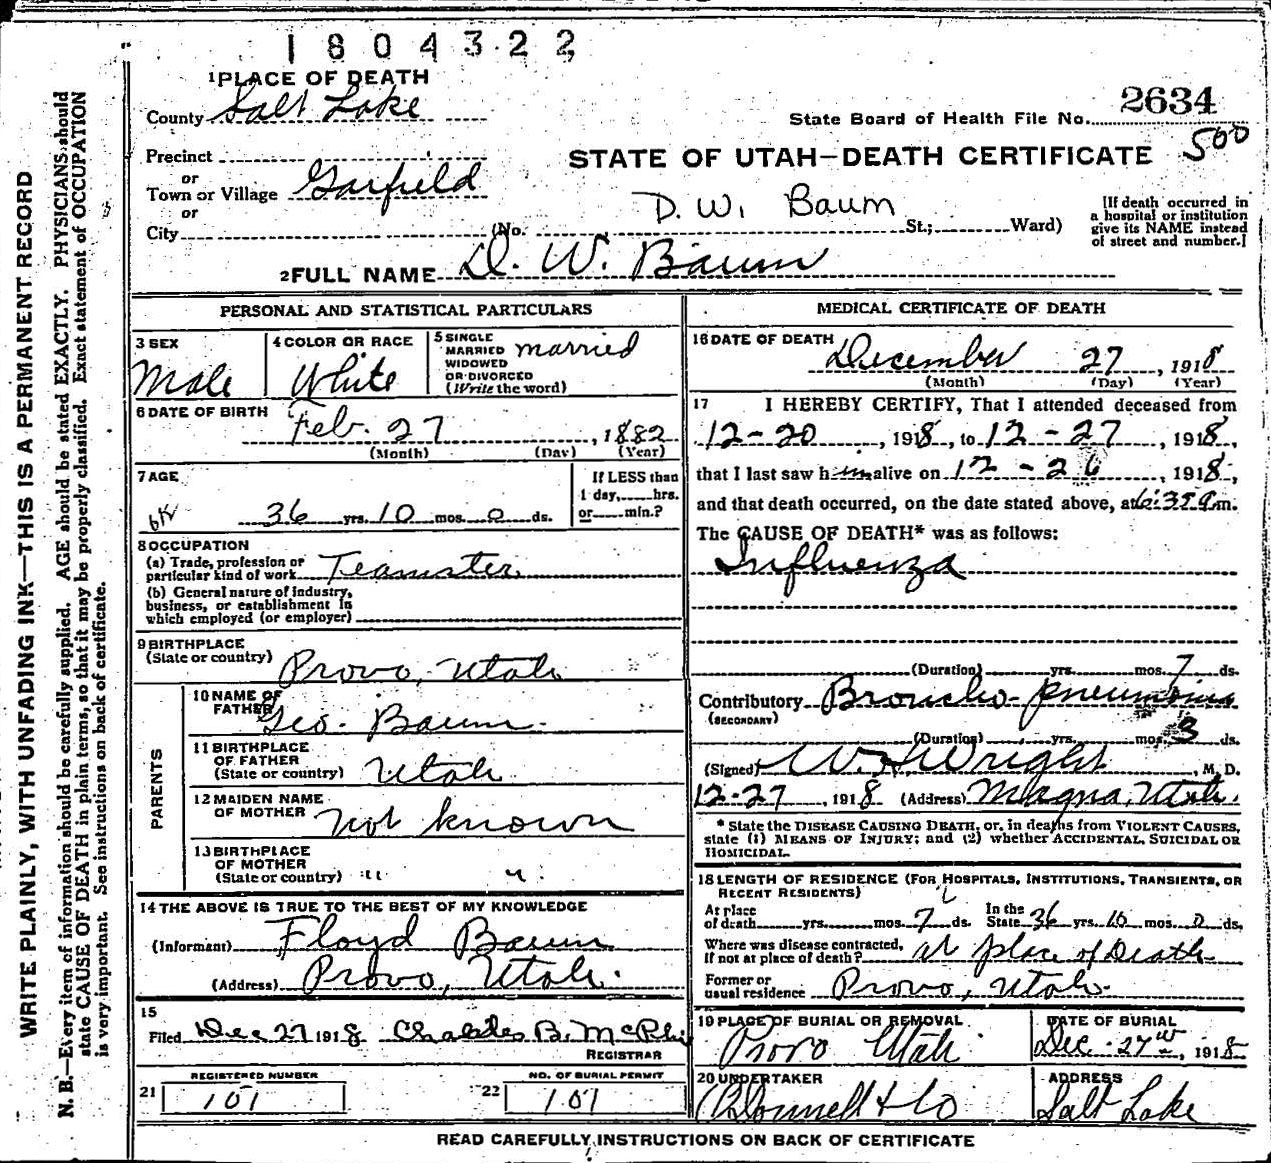 1804322
1 PLACE OF DEATH
County Salt Lake
State Board of Health File No. 2634
500
Precinct
or
Town or Village Garfield
or
City
STATE OF UTAH—DEATH CERTIFICATE
D. W. Baum
(No. St.; Ward)
[If death occurred in
a hospital or institution
give its NAME instead
of street and number.]
2 FULL NAME D. W. Baum
PERSONAL AND STATISTICAL PARTICULARS
3 SEX
Male
4 COLOR OR RACE
White
5 SINGLE
MARRIED
WIDOWED
OR DIVORCED
(Write the word)
married
6 DATE OF BIRTH
Feb. 27, 1882
(Month) (Day) (Year)
7 AGE
36 yrs. 10 mos. 0 ds.
If LESS than
1 day, hrs.
or min.?
8 OCCUPATION
(a) Trade, profession or
particular kind of work Teamster
(b) General nature of industry,
business, or establishment in
which employed (or employer)
9 BIRTHPLACE
(State or country) Provo, Utah
PARENTS
10 NAME OF
FATHER Geo. Baum
11 BIRTHPLACE
OF FATHER
(State or country) Utah
12 MAIDEN NAME
OF MOTHER Not known
13 BIRTHPLACE
OF MOTHER
(State or country) " "
14 THE ABOVE IS TRUE TO THE BEST OF MY KNOWLEDGE
(Informant) Floyd Baum
(Address) Provo, Utah.
15
Filed Dec 27 1918 B. McPhi
REGISTRAR
REGISTERED NUMBER
21 101
NO. OF BURIAL PERMIT
22 101
MEDICAL CERTIFICATE OF DEATH
16 DATE OF DEATH
December 27, 1918
(Month) (Day) (Year)
17 I HEREBY CERTIFY, That I attended deceased from
12-20, 1918, to 12-27, 1918,
that I last saw him alive on 12-26, 1918,
and that death occurred, on the date stated above, at m.
The CAUSE OF DEATH* was as follows:
Influenza
(Duration) yrs. mos. 7 ds.
Contributory Broncho-pneumonia
(SECONDARY)
(Duration) yrs. mos. 3 ds.
(Signed) Wright, M. D.
12-27, 1918 (Address) Magna, Utah.
* State the DISEASE CAUSING DEATH, or, in deaths from VIOLENT CAUSES,
state (1) MEANS OF INJURY; and (2) whether ACCIDENTAL, SUICIDAL OR
HOMICIDAL.
18 LENGTH OF RESIDENCE (FOR HOSPITALS, INSTITUTIONS, TRANSIENTS, OR
RECENT RESIDENTS)
At place
of death yrs. mos. 7 ds. In the
State 36 yrs. 10 mos. 0 ds.
Where was disease contracted,
If not at place of death? At place of Death
Former or
usual residence Provo, Utah.
19 PLACE OF BURIAL OR REMOVAL
Provo Utah
DATE OF BURIAL
Dec. 27th, 1918
20 UNDERTAKER
O'Donnell & Co
ADDRESS
Salt Lake
READ CAREFULLY INSTRUCTIONS ON BACK OF CERTIFICATE
WRITE PLAINLY, WITH UNFADING INK—THIS IS A PERMANENT RECORD
N. B.—Every item of information should be carefully supplied. AGE should be stated EXACTLY. PHYSICIANS should
state CAUSE OF DEATH in plain terms, so that it may be properly classified. Exact statement of OCCUPATION
is very important. See instructions on back of certificate.